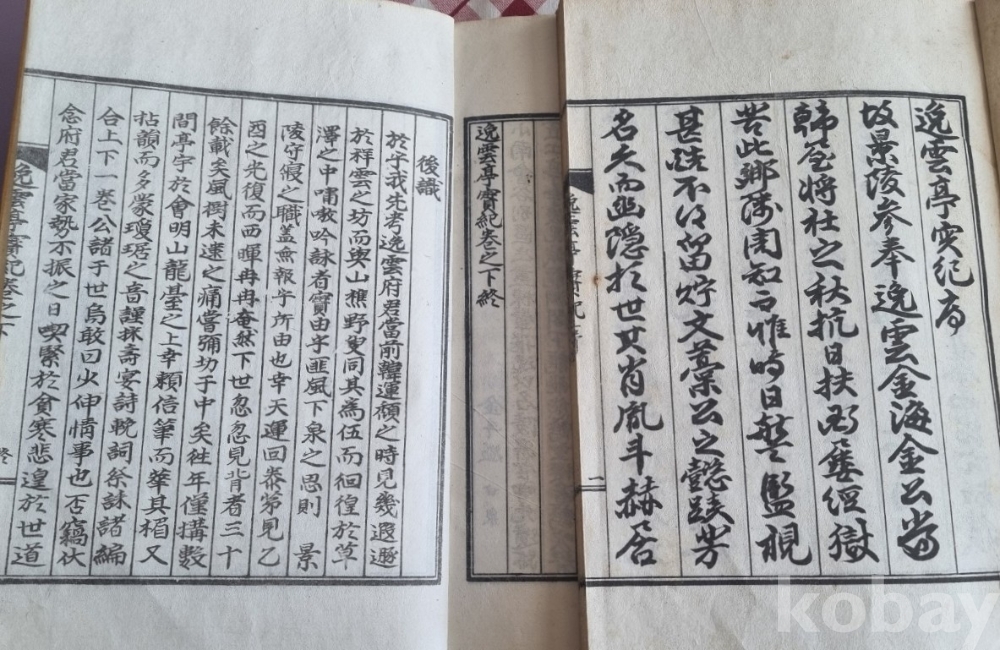 逸雲亭实紀序
故景陵參奉逸雲金海金公當
韓室將社之秋抗日扶弱屢經獄
苦此鄉隣周知而惟時日警監視
甚酷不得留貯文藁公之懿蹟芳
名久而幽隱於世其肖胤斗赫居
二
逸雲亭實紀卷之下終
後識
於乎我先考逸雲府君當前韓運頹之時見幾遐遯
於祥雲之坊而與山樵野叟同其為伍而徊徨於草
澤之中嘯噭吟詠者實由乎匪風下泉之思則 景
陵守寢之職蓋無報乎所由也幸天運回泰第見乙
酉之光復而西暉冉冉奄然下世忽忽見背者三十
餘載矣風樹未逮之痛嘗彌切于中矣往年僅搆數
間亭宇於會明山龍臺之上幸賴信筆而華其楣又
拈韻而多蒙瓊琚之音謹採壽宴詩輓詞祭誄諸編
合上下一卷公諸于世烏敢曰少伸情事也否竊伏
念府君當家勢不振之日喫緊於貧寒悲遑於世道
逸雲亭實紀卷之下 終
kobay